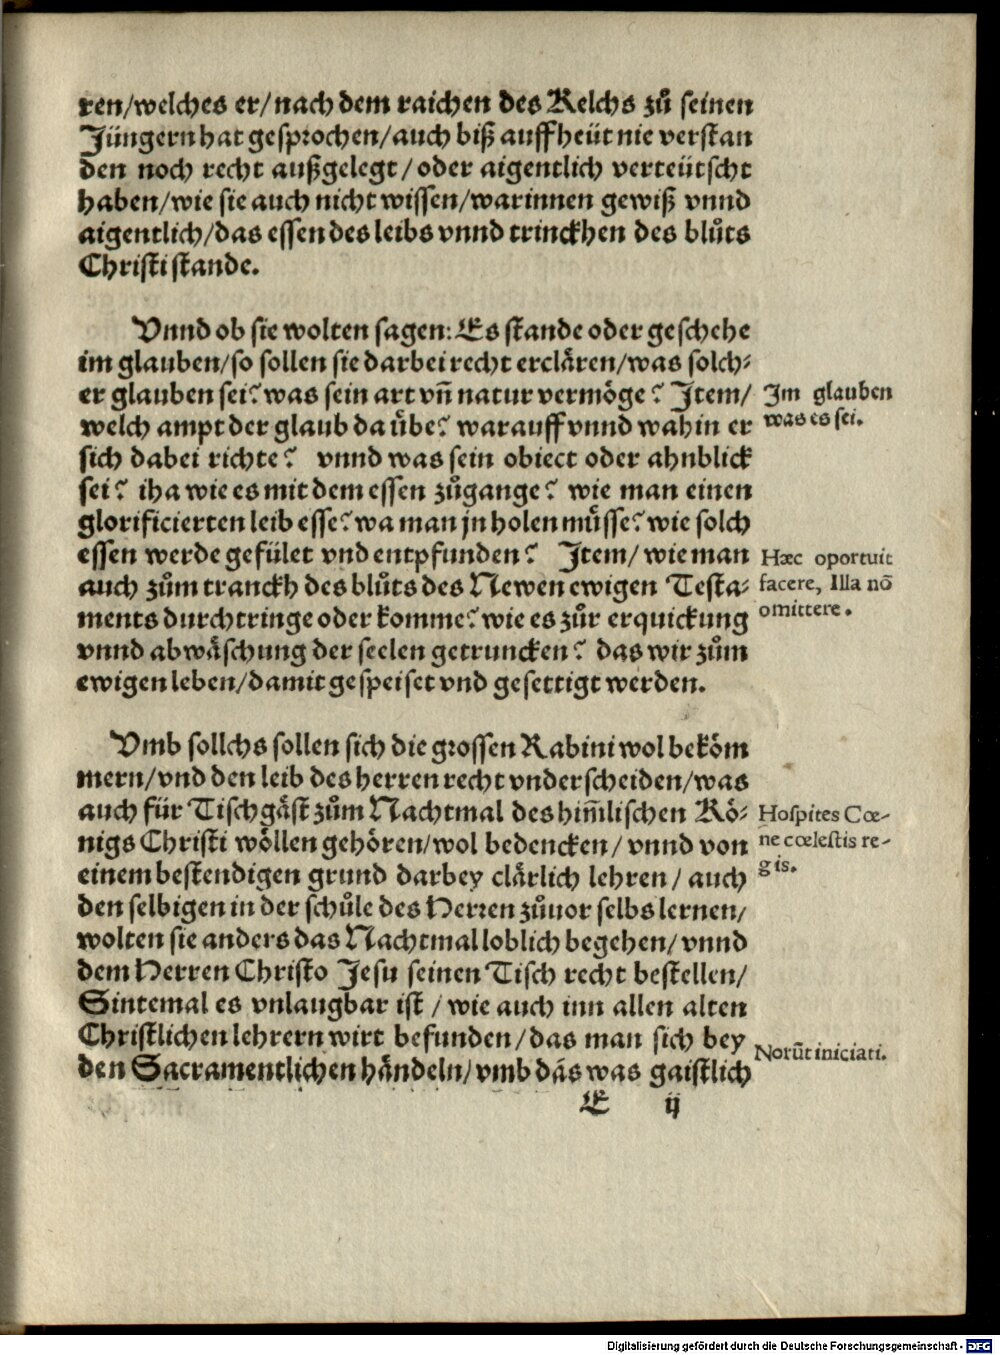 ren/welches er/nach dem raichen des Kelchs zů seinen
Jüngern hat gesprochen/auch biß auffheüt nie verstan
den noch recht außgelegt/oder aigentlich verteütscht
haben/wie sie auch nicht wissen/warinnen gewiß vnnd
aigentlich/das essen des leibs vnnd trinckhen des blůts
Christi stande.
Vnnd ob sie wolten sagen: Es stande oder geschehe
im glauben/so sollen sie darbei recht erclären/was solch⸗
er glauben sei? was sein art vn̄ natur vermöge? Item/
welch ampt der glaub da übe? warauff vnnd wahin er
sich dabei richte? vnnd was sein obiect oder ahnblick
sei? iha wie es mit dem essen zůgange? wie man einen
glorificierten leib esse? wa man jn holen müsse? wie solch
essen werde gefület vnd entpfunden? Item/wie man
auch zům tranckh des blůts des Newen ewigen Testa⸗
ments durchtringe oder komme? wie es zůr erquickung
vnnd abwäschung der seelen getruncken? das wir zům
ewigen leben/damit gespeiset vnd gesettigt werden.
Im glauben
was es sei.
Hæc oportuit
facere, Illa nō
omittere.
Vmb sollchs sollen sich die grossen Rabini wol beköm
mern/vnd den leib des herren recht vnderscheiden/was
auch für Tischgäst zům Nachtmal des him̄lischen Kö⸗
nigs Christi wöllen gehören/wol bedencken/vnnd von
einem bestendigen grund darbey clärlich lehren/auch
den selbigen in der schůle des Herren zůuor selbs lernen/
wolten sie anders das Nachtmal loblich begehen/vnnd
dem Herren Christo Jesu seinen Tisch recht bestellen/
Sintemal es vnlaugbar ist/wie auch inn allen alten
Christlichen lehrern wirt befunden/das man sich bey
den Sacramentlichen händeln/vmb däs was gaistlich
Hospites Cœ-
ne cœlestis re-
gis.
Norūt iniciati.
E ij
Digitalisierung gefördert durch die Deutsche Forschungsgemeinschaft - DFG